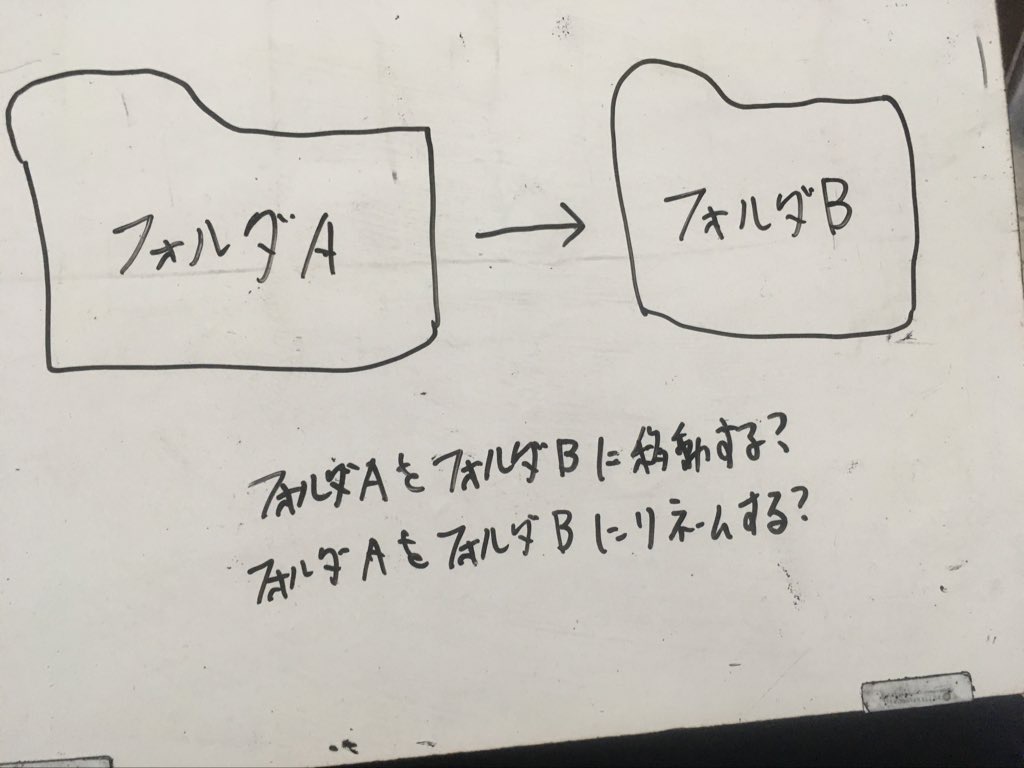 フォルダA
→
フォルダB
フォルダAをフォルダBに移動する?
フォルダAをフォルダBにリネームする?